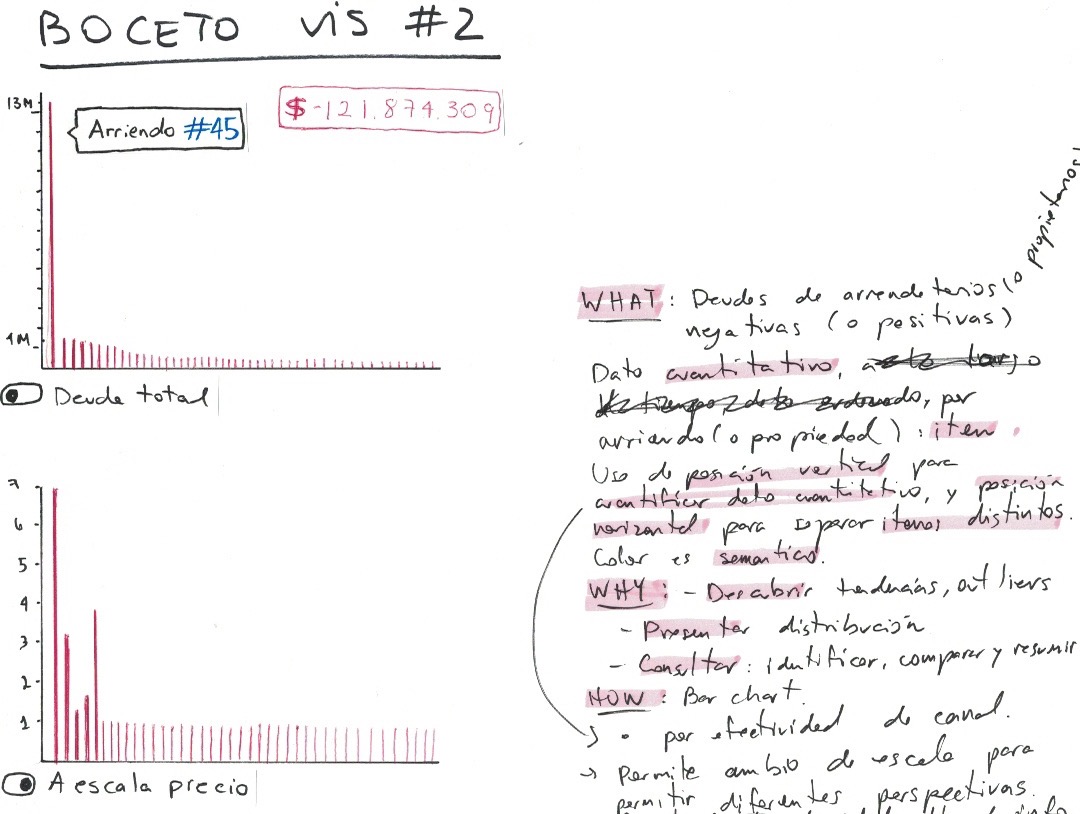 BOCETO VIS #2
13M
Arriendo #45
$ -121.874.309
1M
Deuda total
7
6
5
4
3
2
1
A escala precio
WHAT: Deudas de arrendatarios (o propietarios)
negativas (o positivas)
Dato cuantitativo,
por
arriendo (o propiedad): item.
Uso de posición vertical para
cuantificar dato cuantitativo, y posición
horizontal para separar items distintos.
Color es semantico.
WHY: - Descubrir tendencias, outliers
- Presentar distribución
- Consultar: identificar, comparar y resumir
HOW: Bar chart.
• por efectividad de canal.
→ Permite cambio de escala para
permitir diferentes perspectivas.